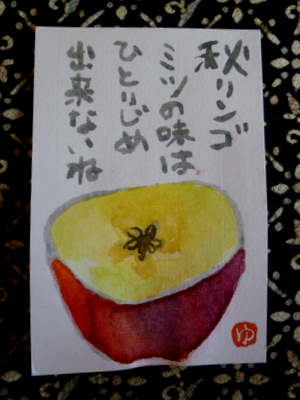 秋リンゴ
ミツの味は
ひとりじめ
出来ないね
ゆ